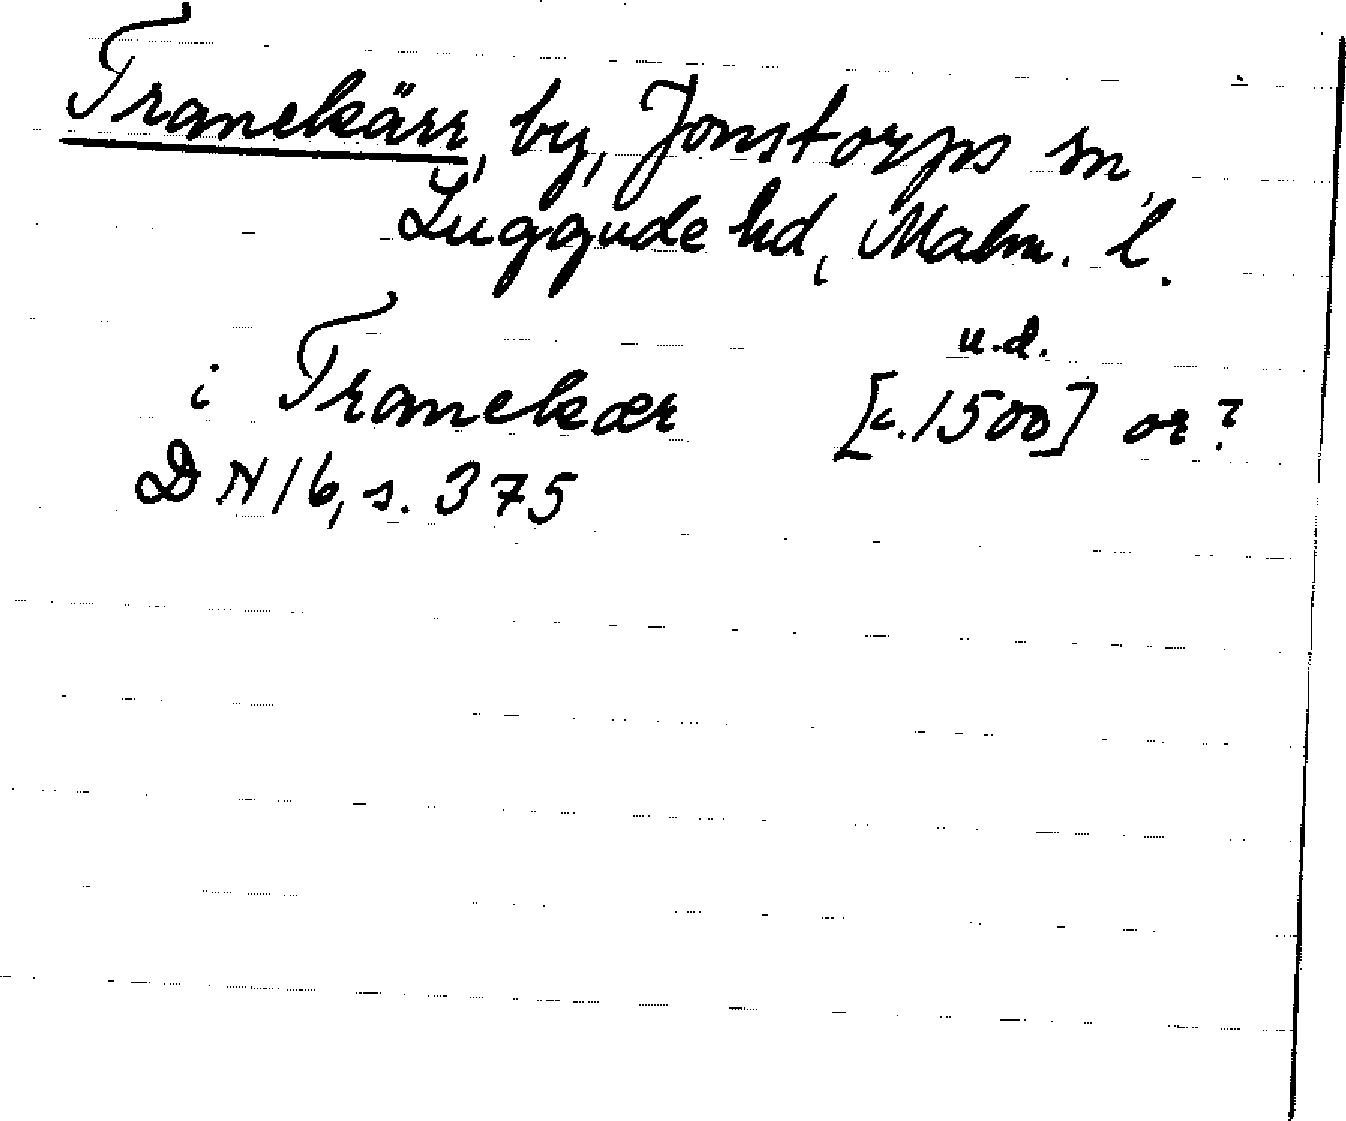 Tranekärr, by, Jonstorps sn,
Luggude hd, Malm. l.
u.d.
i Tranekær [c. 1500] or?
DN 16, s. 375